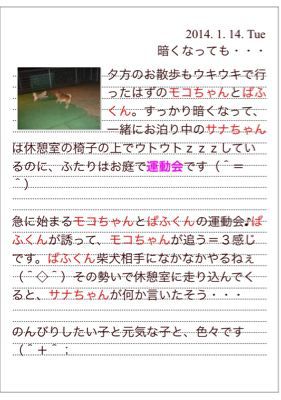 2014. 1. 14. Tue
暗くなっても・・・
夕方のお散歩もウキウキで行
ったはずのモコちゃんとぱふ
くん。すっかり暗くなって、
一緒にお泊り中のサナちゃん
は休憩室の椅子の上でウトウトｚｚｚしてい
るのに、ふたりはお庭で運動会です（＾＝
＾）
急に始まるモコちゃんとぱふくんの運動会♪ぱ
ふくんが誘って、モコちゃんが追う＝３感じ
です。ぱふくん柴犬相手になかなかやるねぇ
（＾◇＾）その勢いで休憩室に走り込んでく
ると、サナちゃんが何か言いたそう・・・
のんびりしたい子と元気な子と、色々です
（＾＋＾；